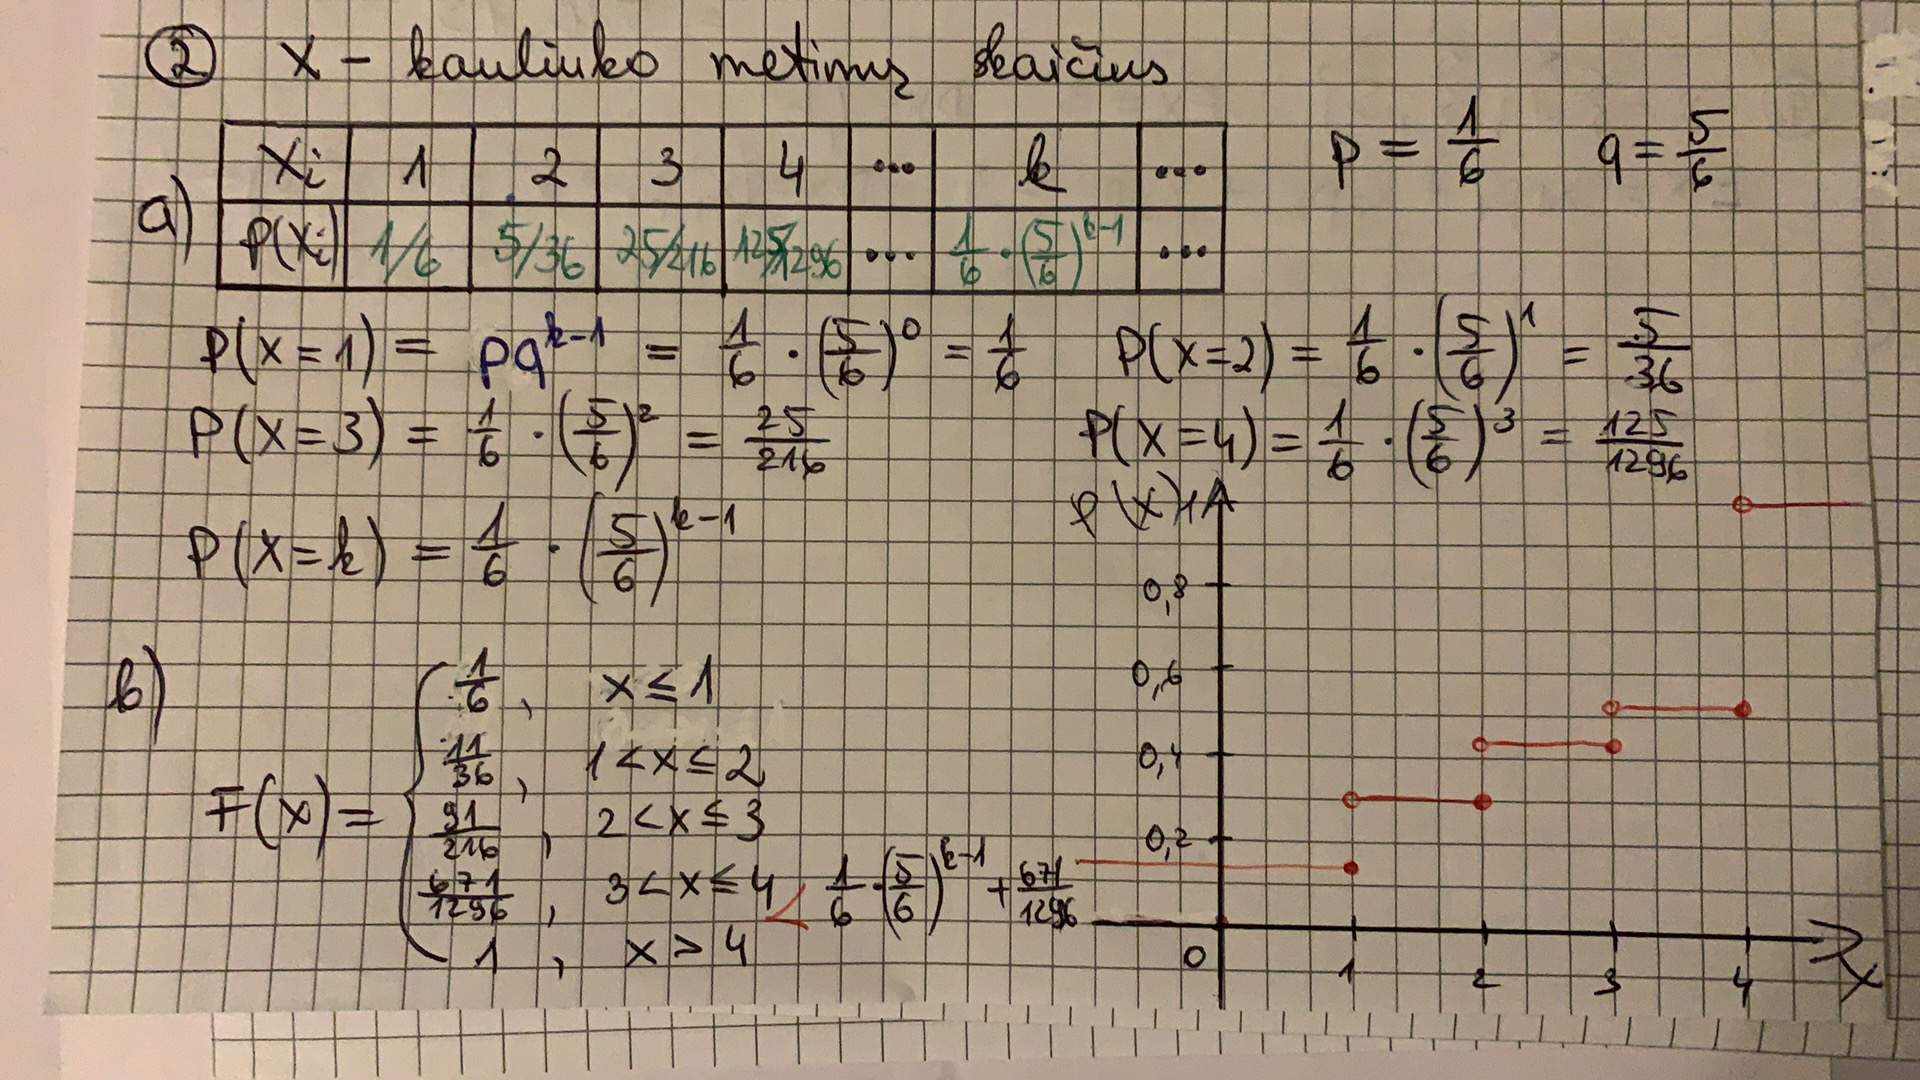 ② X – kauliuko metimų skaičius
a) Xi 1 2 3 4 ... k ...
P(Xi) 1/6 5/36 25/216 125/1296 ... 1/6 · (5/6)^k-1 ...
p = 1/6 q = 5/6
P(X=1) = pq^k-1 = 1/6 · (5/6)^0 = 1/6 P(X=2) = 1/6 · (5/6)^1 = 5/36
P(X=3) = 1/6 · (5/6)^2 = 25/216 P(X=4) = 1/6 · (5/6)^3 = 125/1296
P(X=k) = 1/6 · (5/6)^k-1
b)
F(x) =
1/6, x ≤ 1
11/36, 1 < x ≤ 2
91/216, 2 < x ≤ 3
671/1296, 3 < x ≤ 4 < 1/6 · (5/6)^k-1 + 671/1296
1, x > 4
0,8
0,6
0,4
0,2
0 1 2 3 4 X